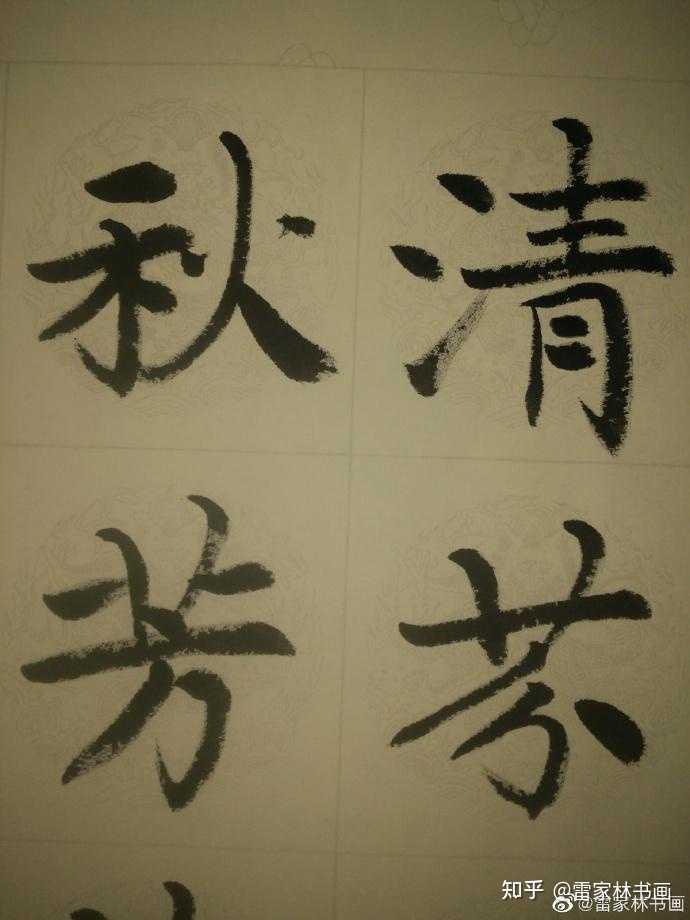 清芬
秋芳
知乎 @雷家林书画
@雷家林书画